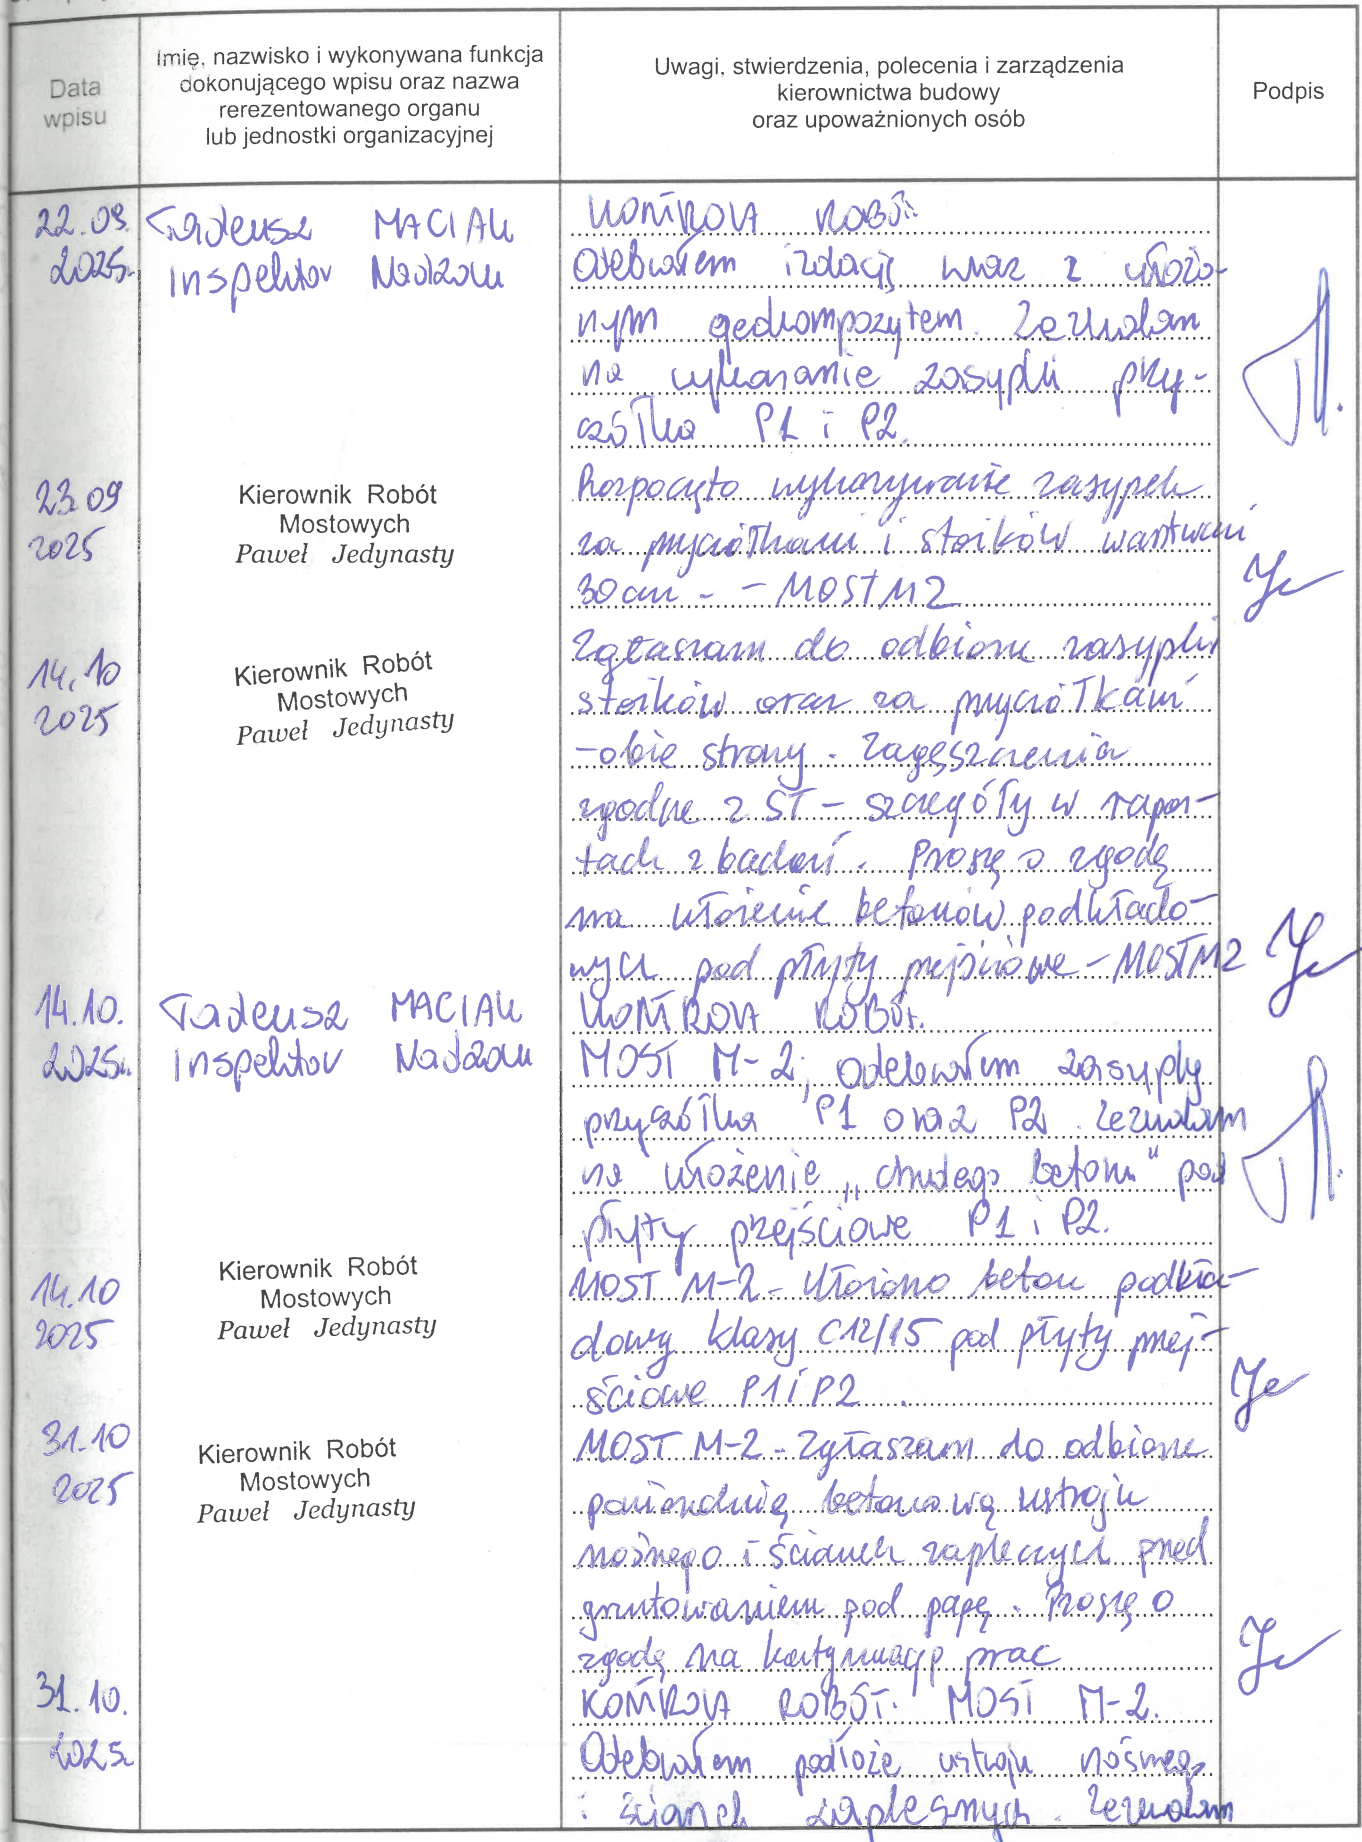 Data
wpisu
Imię, nazwisko i wykonywana funkcja
dokonującego wpisu oraz nazwa
rerezentowanego organu
lub jednostki organizacyjnej
Uwagi, stwierdzenia, polecenia i zarządzenia
kierownictwa budowy
oraz upoważnionych osób
Podpis
22.09.
2025r.
Tadeusz MACIAK
Inspektor Nadzoru
KONTROLA ROBÓT:
Odebrałem izolację wraz z ułożo-
nym geokompozytem. Zezwalam
na wykonanie zasypki przy-
czółka P1 i P2.
23.09
2025
Kierownik Robót
Mostowych
Paweł Jedynasty
Rozpoczęto wykonywanie zasypek
za przyczółkami i stożków warstwami
30 cm - - MOST M2
14.10
2025
Kierownik Robót
Mostowych
Paweł Jedynasty
Zgłaszam do odbioru zasypki
stożków oraz za przyczółkami
- obie strony. Zagęszczenia
zgodne z ST - szczegóły w rapor-
tach z badań. Proszę o zgodę
na ułożenie betonów podkłado-
wych pod płyty przejściowe - MOST M2
14.10.
2025r.
Tadeusz MACIAK
Inspektor Nadzoru
KONTROLA ROBÓT.
MOST M-2; odebrałem zasypkę
przyczółka P1 oraz P2. Zezwalam
na ułożenie „chudego betonu" pod
płyty przejściowe P1 i P2.
14.10
2025
Kierownik Robót
Mostowych
Paweł Jedynasty
MOST M-2 - Ułożono beton podkła-
dowy klasy C12/15 pod płyty przej-
ściowe P1 i P2.
31.10
2025
Kierownik Robót
Mostowych
Paweł Jedynasty
MOST M-2 - Zgłaszam do odbioru
powierzchnię betonową ustroju
nośnego i ścianek zaplecznych przed
gruntowaniem pod papę. Proszę o
zgodę na kontynuację prac
31.10.
2025r.
KONTROLA ROBÓT. MOST M-2.
Odebrałem podłoże ustroju nośnego
i ścianek zaplecznych. Zezwalam